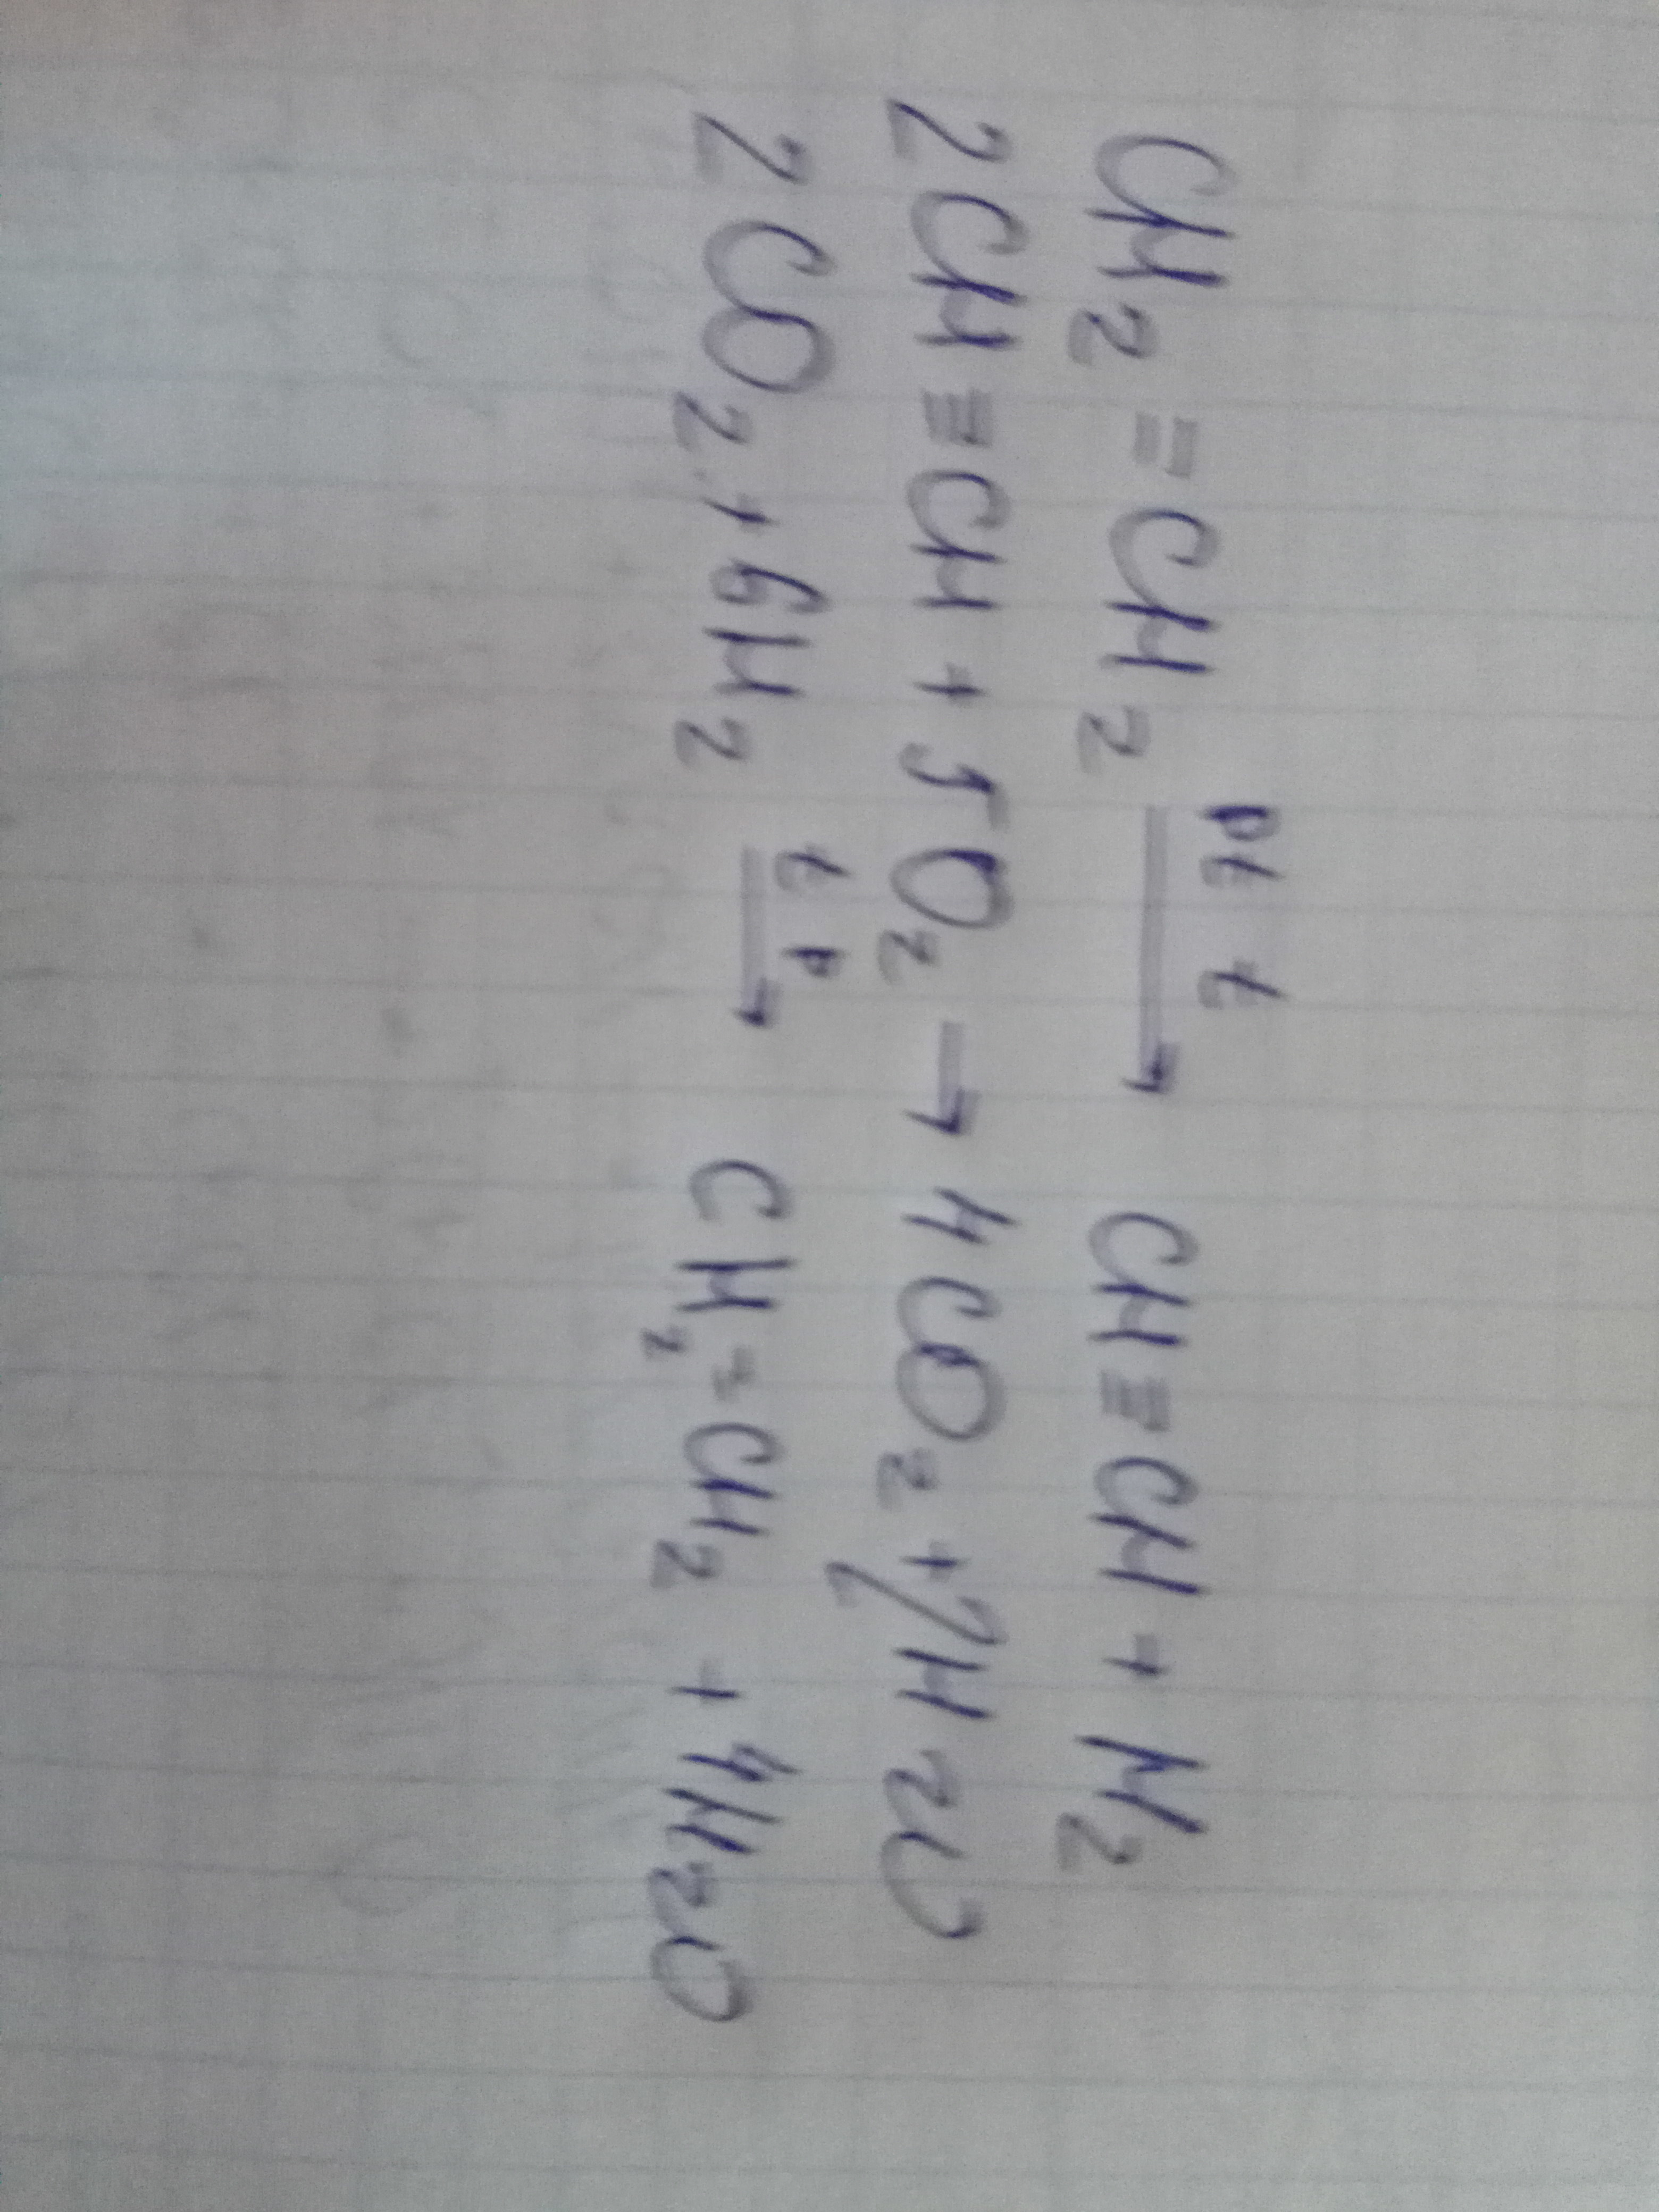 CH₂=CH₂ $\xrightarrow{pt\ t}$ CH≡CH + H₂
2CH≡CH + 5O₂ → 4CO₂ + 2H₂O
2CO₂ + 6H₂ $\xrightarrow{t\ p}$ CH₂=CH₂ + 4H₂O